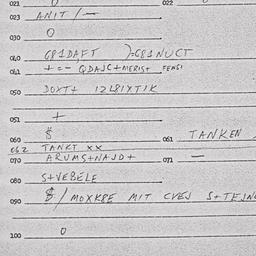 021 022
023 ANIT / –
030 O
040 G81DAFT )=G81NUCT
041 + = - QDAJC+MERIS+ FENSI
050 DOXT+ IZL8IXTIK
051 +
060 $ 061 TANKEN
062 TANKT XX
070 ARUMS+NAJD+ 071 –
080 S+VEBELE
090 $ / MOXKBE MIT CVEJ S+TEJN
100 O